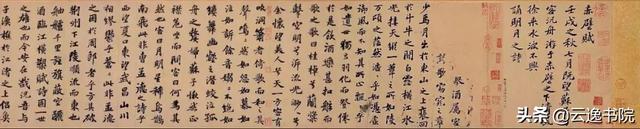 赤壁賦
壬戌之秋七月既望蘇子與
客泛舟游于赤壁之下清風
徐來水波不興
誦明月之詩
舉酒屬客
歌窈窕之章
少焉月出於東山之上裴回
於斗牛之間白露橫江水
光接天縱一葦之所如陵
萬頃之茫然浩乎如馮虛
御風而不知其所止飄乎
如遺世獨立羽化而登僊
於是飲酒樂甚扣舷而
歌之歌曰桂棹兮蘭槳
擊空明兮泝流光渺渺兮
余懷望美人兮天一方客有
吹洞簫者倚歌而和之其
聲嗚嗚然如怨如慕如泣
如訴餘音嫋嫋不絕如
縷舞幽壑之潛蛟泣孤
舟之嫠婦蘇子愀然正
襟危坐而問客曰何為其
然也客曰月明星稀烏鵲
南飛此非曹孟德之詩乎
西望夏口東望武昌山川
相繆鬱乎蒼蒼此非孟德之
困於周郎者乎方其破
荊州下江陵順流而東也
舳艫千里旌旗蔽空釃
酒臨江橫槊賦詩固一世
之雄也而今安在哉況吾與
子漁樵於江渚之上侶魚
头条 @云逸书院